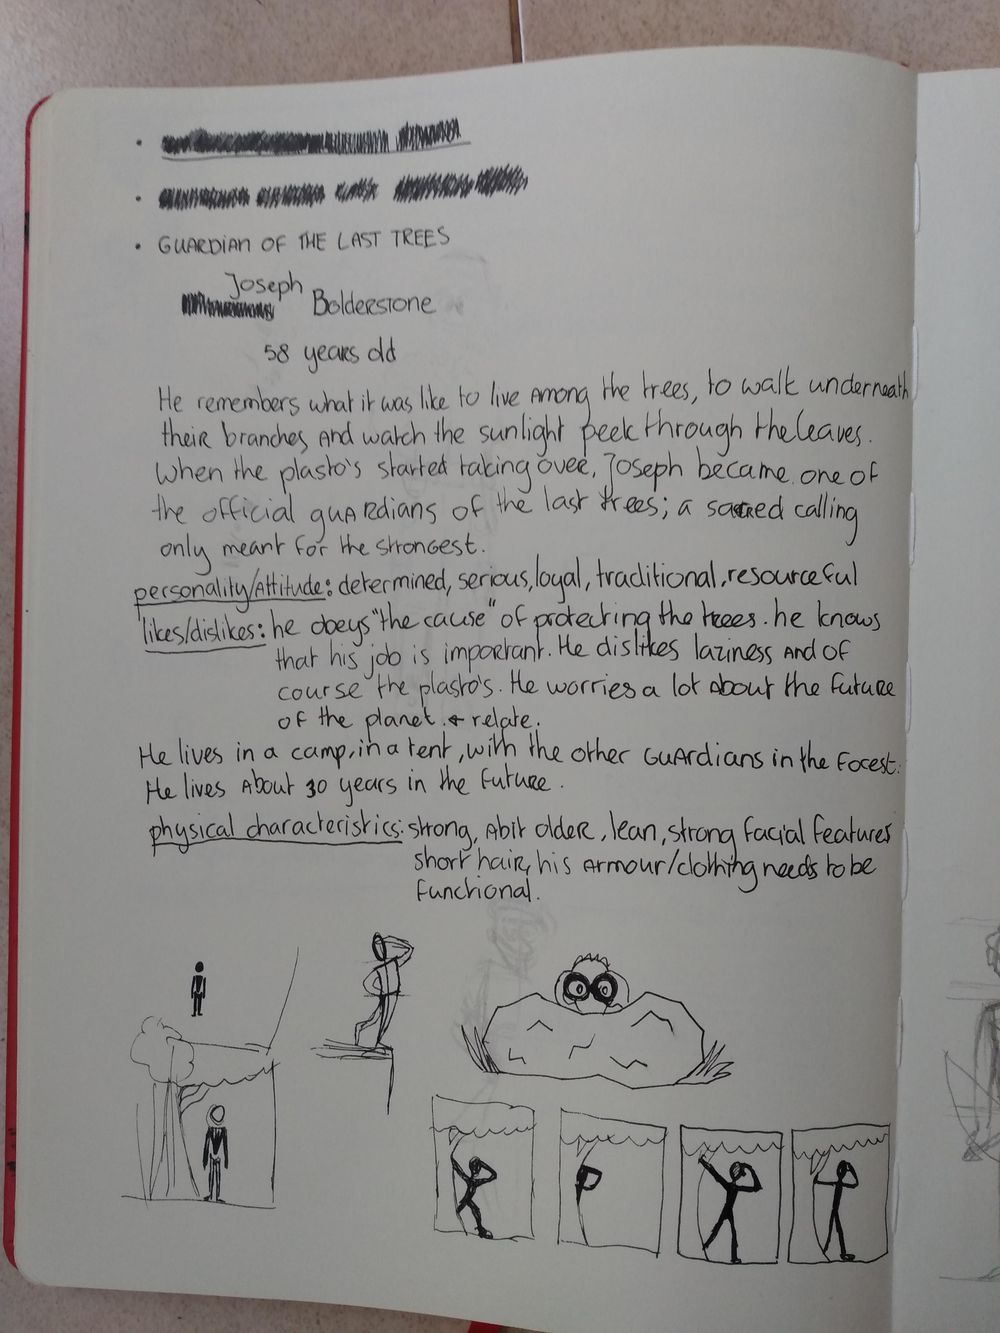 • GUARDIAN OF THE LAST TREES
Joseph
Bolderstone
58 years old
He remembers what it was like to live Among the trees, to walk underneath
their branches, And watch the sunlight peek through the leaves.
When the plasto's started taking over, Joseph became one of
the official guardians of the last trees; a sacred calling
only meant for the strongest.
personality/Attitude: determined, serious, loyal, traditional, resourceful
likes/dislikes: he obeys "the cause" of protecting the trees. he knows
that his job is important. He dislikes laziness and of
course the plasto's. He worries a lot about the future
of the planet. + relate.
He lives in a camp, in a tent, with the other Guardians in the forest.
He lives about 30 years in the future.
physical characteristics: strong, Abit older, lean, strong facial features
short hair, his Armour/clothing needs to be
functional.